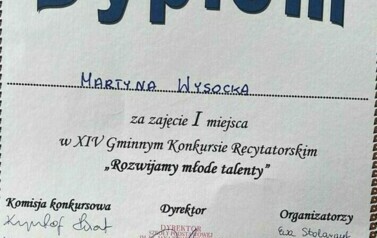 Dyplom
MARTYNA WYSOCKA
za zajęcie I miejsca
w XIV Gminnym Konkursie Recytatorskim
„Rozwijamy młode talenty”
Komisja konkursowa Dyrektor Organizatorzy
DYREKTOR